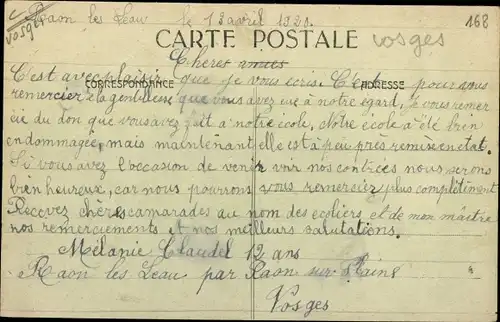 Raon les Leau le 12 avril 1920.
168
Vosges
CARTE POSTALE
Vosges
Chères amies
CORRESPONDANCE
ADRESSE
C'est avec plaisir que je vous écris. C'est pour vous
remercier de la gentillesse que vous avez eue à notre égard, je vous remer
cie du don que vous avez fait à notre école, Notre école a été bien
endommagée, mais maintenant elle est à peu près remise en état.
Si vous avez l'occasion de venir voir nos contrées nous serons
bien heureux, car nous pourrons vous remersiez plus complètement
Recevez chères camarades au nom des écoliers et de mon maître
nos remerciements et nos meilleurs salutations.
Mélanie Claudel 12 ans
Raon les Leau par Raon sur Plaine
Vosges